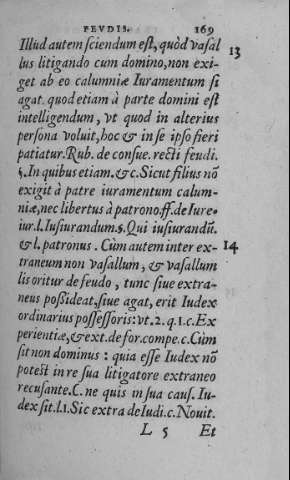 FEVDIS. 169
Illud autem sciendum est, quòd vasal 13
lus litigando cum domino, non exi-
get ab eo calumniæ Iuramentum si
agat. quod etiam à parte domini est
intelligendum, vt quod in alterius
persona voluit, hoc & in se ipso fieri
patiatur. Rub. de consue. recti feudi.
§. In quibus etiam. &c. Sicut filius nõ
exigit à patre iuramentum calum-
niæ, nec libertus à patrono. ff. de Iure
iur. l. Iusiurandum. §. Qui iusiurandũ.
& l. patronus. Cùm autem inter ex- 14
traneum non vasallum, & vasallum
lis oritur de feudo, tunc siue extra-
neus possideat, siue agat, erit Iudex
ordinarius possessoris: vt. 2. q. 1. c. Ex
perientiæ, & ext. de for. compe. c. Cùm
sit non dominus: quia esse Iudex nõ
potest in re sua litigatore extraneo
recusante. C. ne quis in sua caus. Iu-
dex sit. l. 1. Sic extra de Iudi. c. Nouit.
L 5 Et